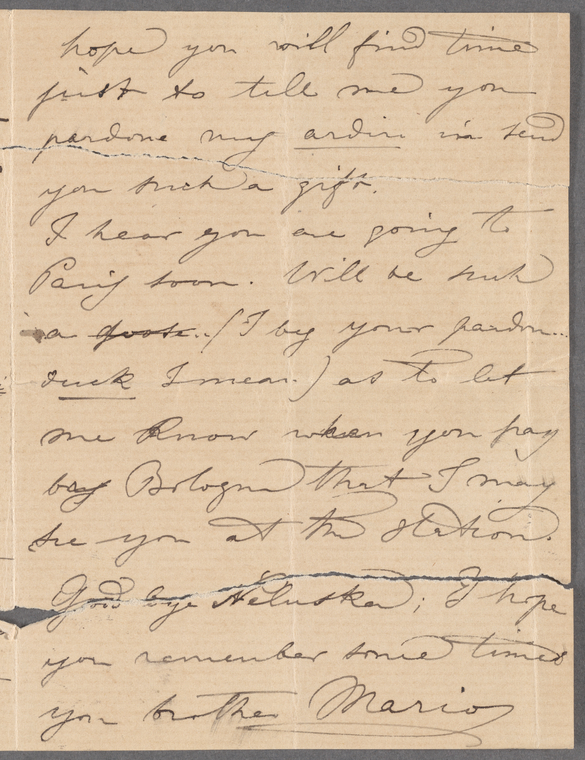 hope you will find time
just to tell me you
pardone my ardire in send
you such a gift.
I hear you are going to
Paris soon. Will be such
a goose.. (I beg your pardon...
duck I mean.) as to let
me know when you pay
bay Bologna that I may
see you at the station.
Good bye Nelusko; I hope
you remember some times
you brother Mario